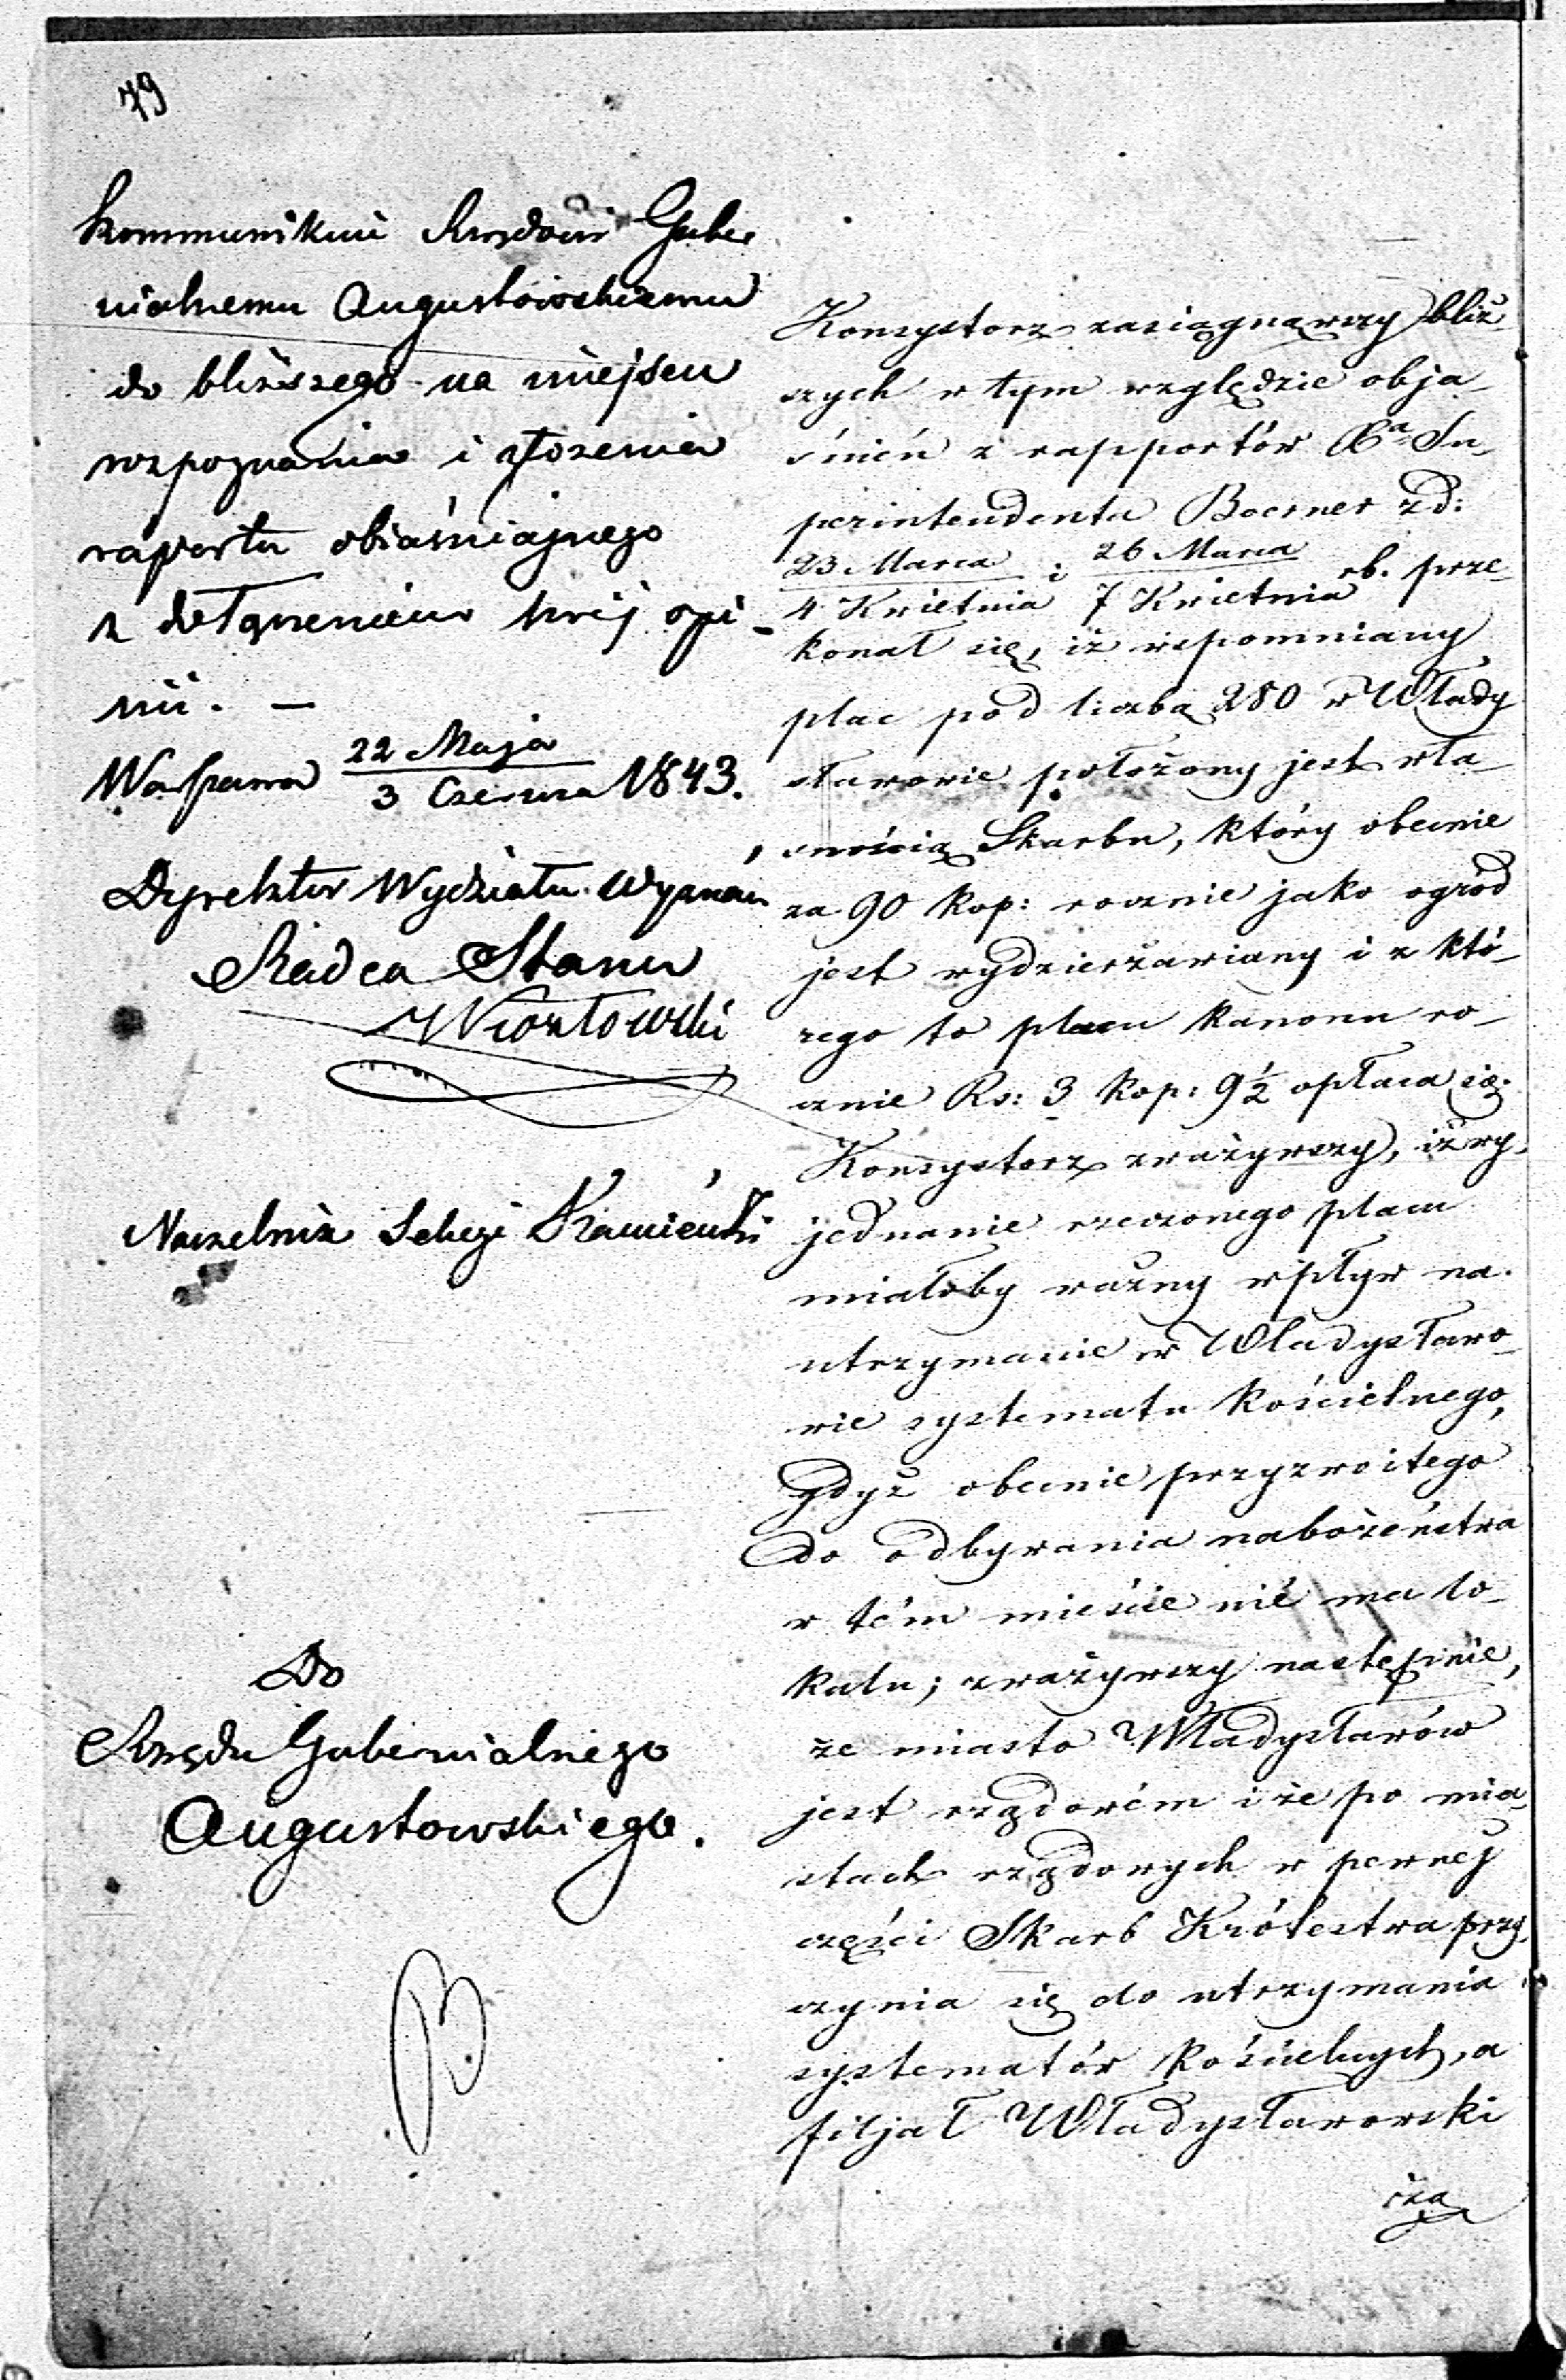 79
Kommunikuie Rządowi Guber
nialnemu Augustowskiemu
do bliższego na miejscu
rozpoznania i złożenia
raportu obiaśniającego
z dołączeniem swéj opi-
nii. —
Warszawa 22 Maja / 3 Czerwca 1843.
Dyrektor Wydziału Wyznań
Radca Stanu
Naczelnik Sekcji Kamieński
Do
Rządu Gubernialnego
Augustowskiego.
Konsystorz zasiągnąwszy bliż-
szych w tym względzie obja-
śnień z rapportów Xa Su-
perintendenta Boerner z d:
23 Marca / 4 Kwietnia i 26 Marca / 7 Kwietnia rb. prze-
konał się, iż wspomniany
plac pod liczbą 280 w Włady
sławowie położony jest wła-
snością Skarbu, który obecnie
za 90 kop: rocznie jako ogród
jest wydzierżawiany i z któ-
rego to placu kanonu ro-
cznie Rs: 3 kop: 9½ opłaca się.
Konsystorz zważywszy, iż wy-
jednanie rzeczonego placu
miałoby ważny wpływ na
utrzymanie w Władysławo-
wie systematu kościelnego,
gdyż obecnie przyzwoitego
do odbywania nabożeństwa
w tém mieście nié ma lo-
kalu; zważywszy następnie,
że miasto Władysławów
jest rządowém i że po mia-
stach rządowych w pewnéj
części Skarb Królestwa przy-
czynia się do utrzymania
systematów kościelnych, a
filjał Władysławowski